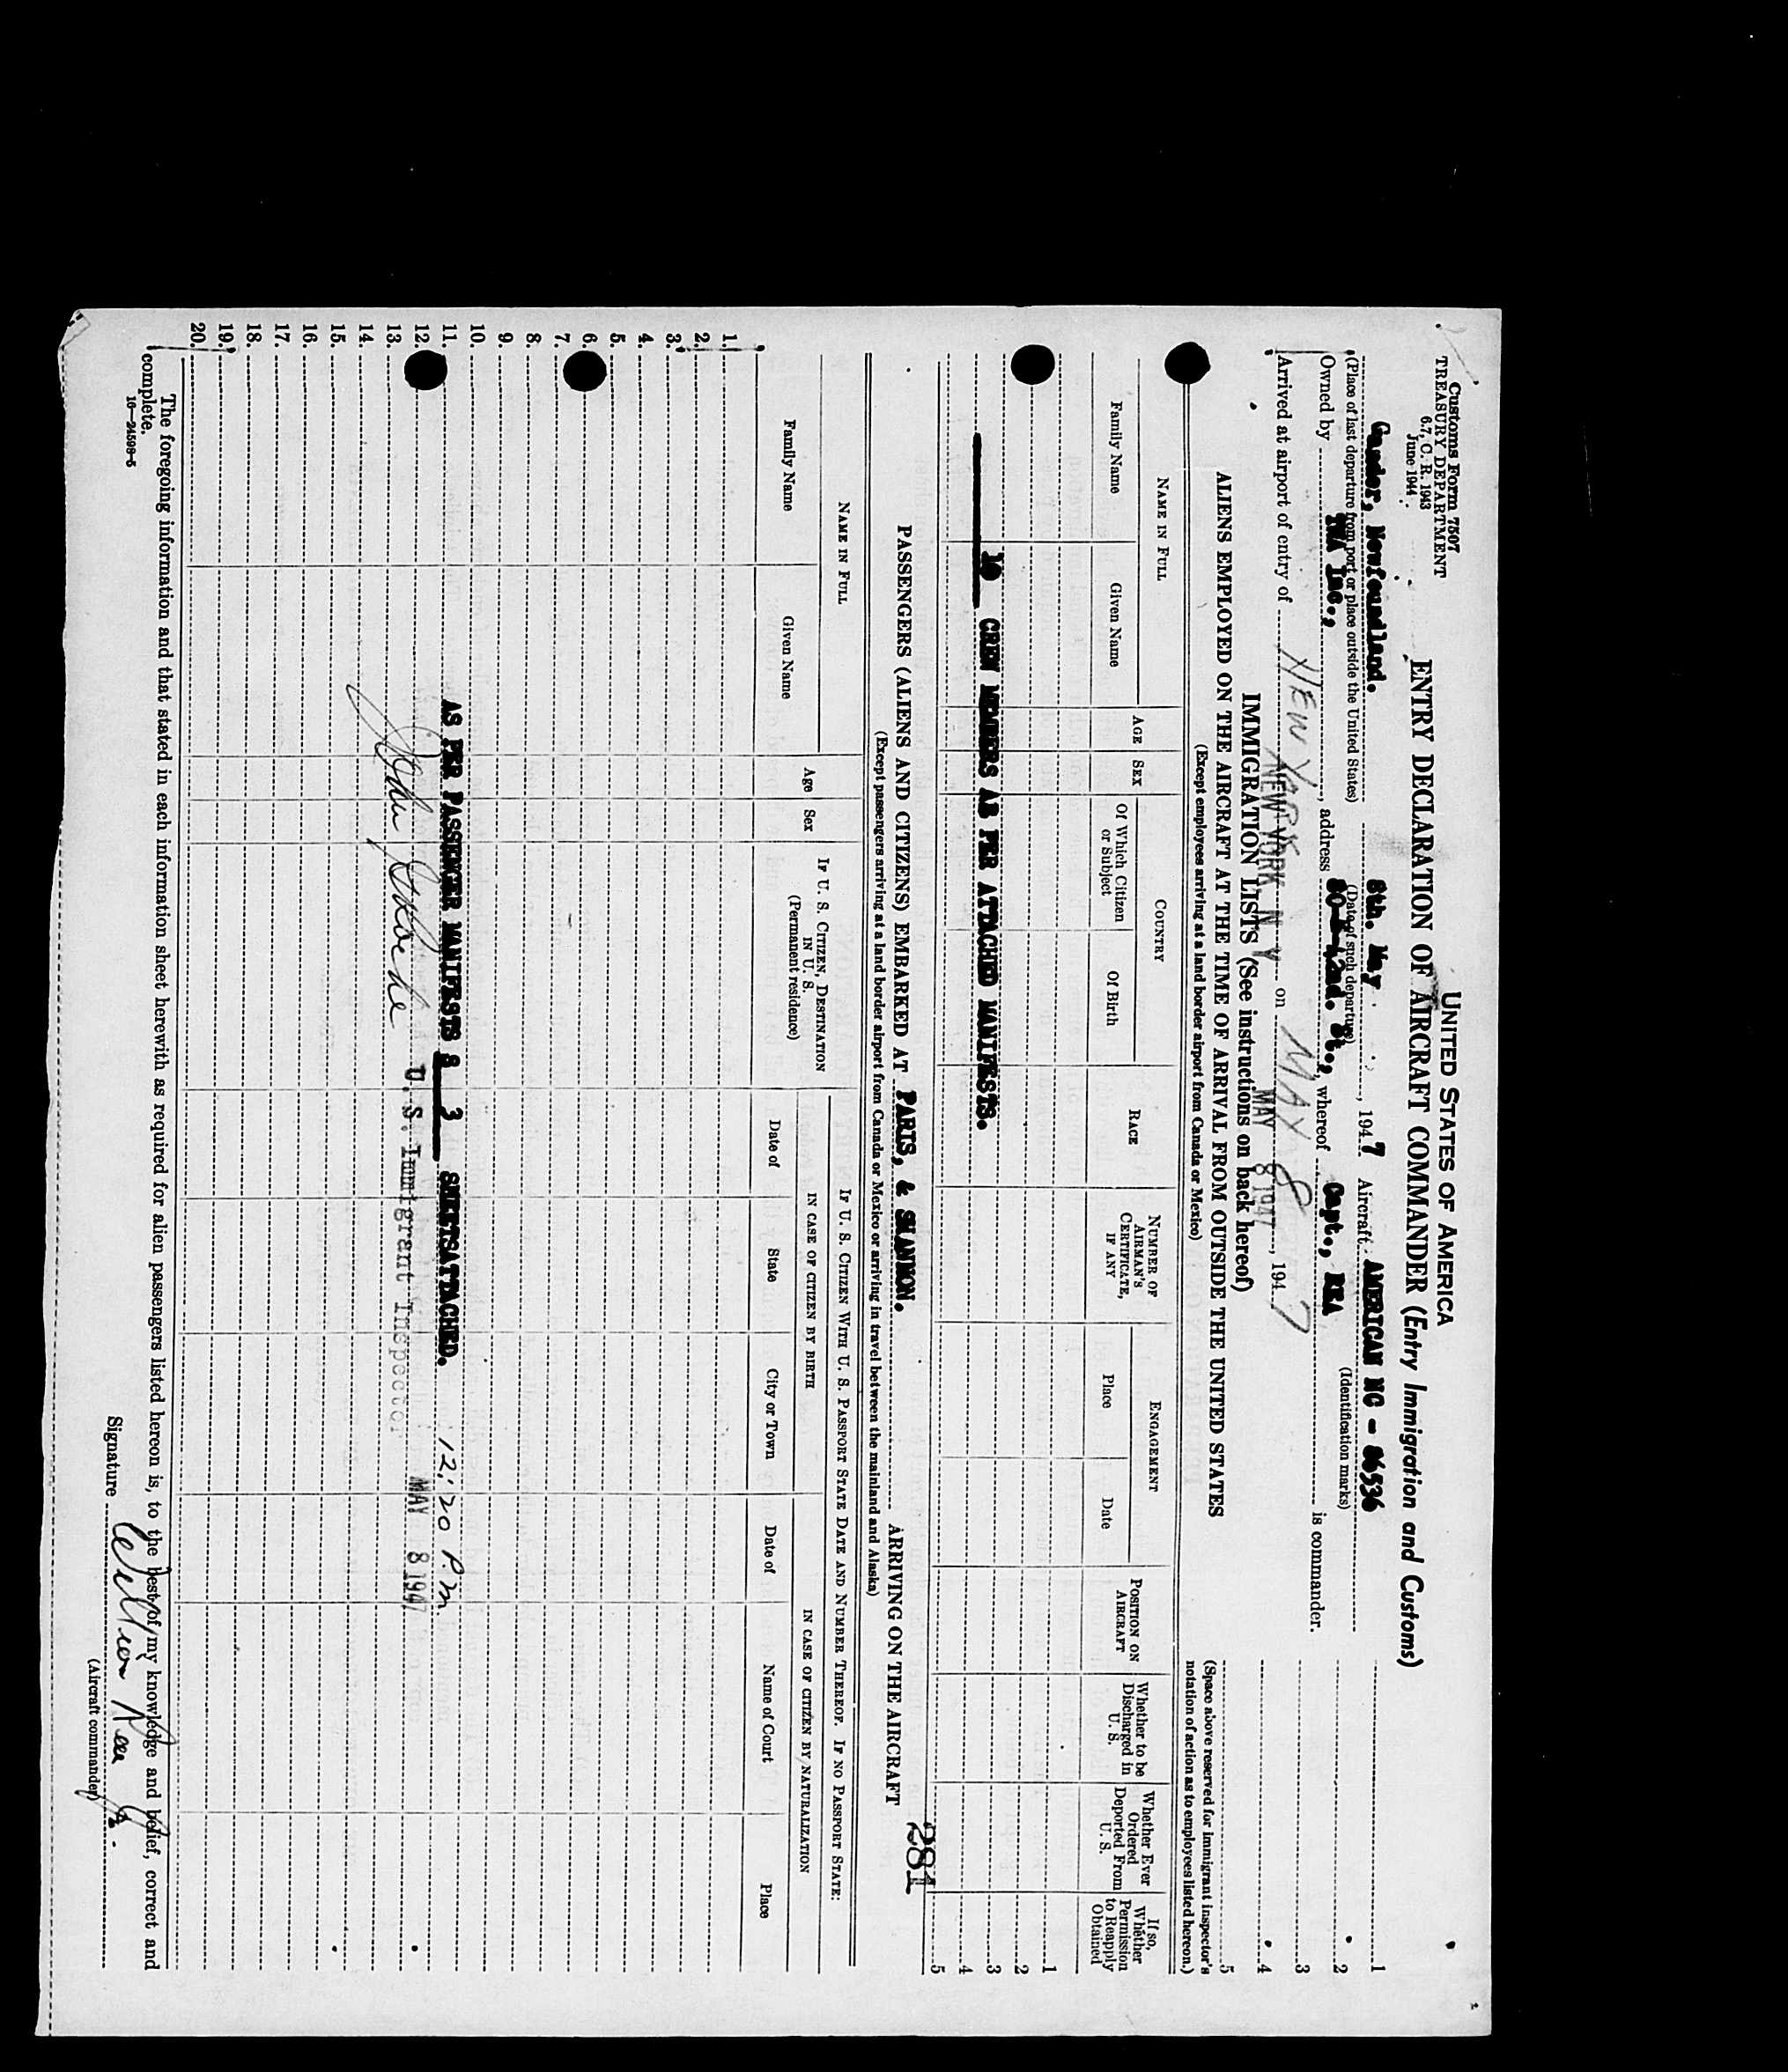 Customs Form 7507
TREASURY DEPARTMENT
6.7, C. R. 1943
June 1944
UNITED STATES OF AMERICA
ENTRY DECLARATION OF AIRCRAFT COMMANDER (Entry Immigration and Customs)
Gander, Newfoundland. 8th. May , 1947 Aircraft AMERICAN NC - 86536
(Place of last departure from port or place outside the United States) (Date of such departure) (Identification marks)
Owned by TWA Inc., , address 80 E 42nd. St., , whereof Capt., REA is commander.
Arrived at airport of entry of NEW YORK on MAY 8 , 1947
NEW YORK N Y MAY 8 1947
IMMIGRATION LISTS (See instructions on back hereof)
ALIENS EMPLOYED ON THE AIRCRAFT AT THE TIME OF ARRIVAL FROM OUTSIDE THE UNITED STATES
(Except employees arriving at a land border airport from Canada or Mexico)
1
2
3
4
5
(Space above reserved for immigrant inspector's notation of action as to employees listed hereon.)
NAME IN FULL
Family Name
Given Name
AGE
SEX
COUNTRY
Of Which Citizen or Subject
Of Birth
RACE
NUMBER OF AIRMAN'S CERTIFICATE, IF ANY
ENGAGEMENT
Place
Date
POSITION ON AIRCRAFT
Whether to be Discharged in U. S.
Whether Ever Ordered Deported From U. S.
If so, Whether Permission to Reapply Obtained
1
2
3
10 CREW MEMBERS AS PER ATTACHED MANIFESTS.
4
5
281
PASSENGERS (ALIENS AND CITIZENS) EMBARKED AT PARIS, & SHANNON. ARRIVING ON THE AIRCRAFT
(Except passengers arriving at a land border airport from Canada or Mexico or arriving in travel between the mainland and Alaska)
NAME IN FULL
Family Name
Given Name
Age
Sex
IF U. S. CITIZEN, DESTINATION IN U. S.
(Permanent residence)
IF U. S. CITIZEN WITH U. S. PASSPORT STATE DATE AND NUMBER THEREOF. IF NO PASSPORT STATE:
IN CASE OF CITIZEN BY BIRTH
IN CASE OF CITIZEN BY NATURALIZATION
Date of
State
City or Town
Date of
Name of Court
Place
1.
2.
3.
4.
5.
6.
7.
8.
9.
10.
11. AS PER PASSENGER MANIFESTS 3 SHEETSATTACHED. 12:20 P.M.
12. U. S. Immigrant Inspector MAY 8 1947
13.
14.
15.
16.
17.
18.
19.
20.
The foregoing information and that stated in each information sheet herewith as required for alien passengers listed hereon is, to the best of my knowledge and belief, correct and
complete.
16—24598-5
Signature William Rea Jr.
(Aircraft commander)